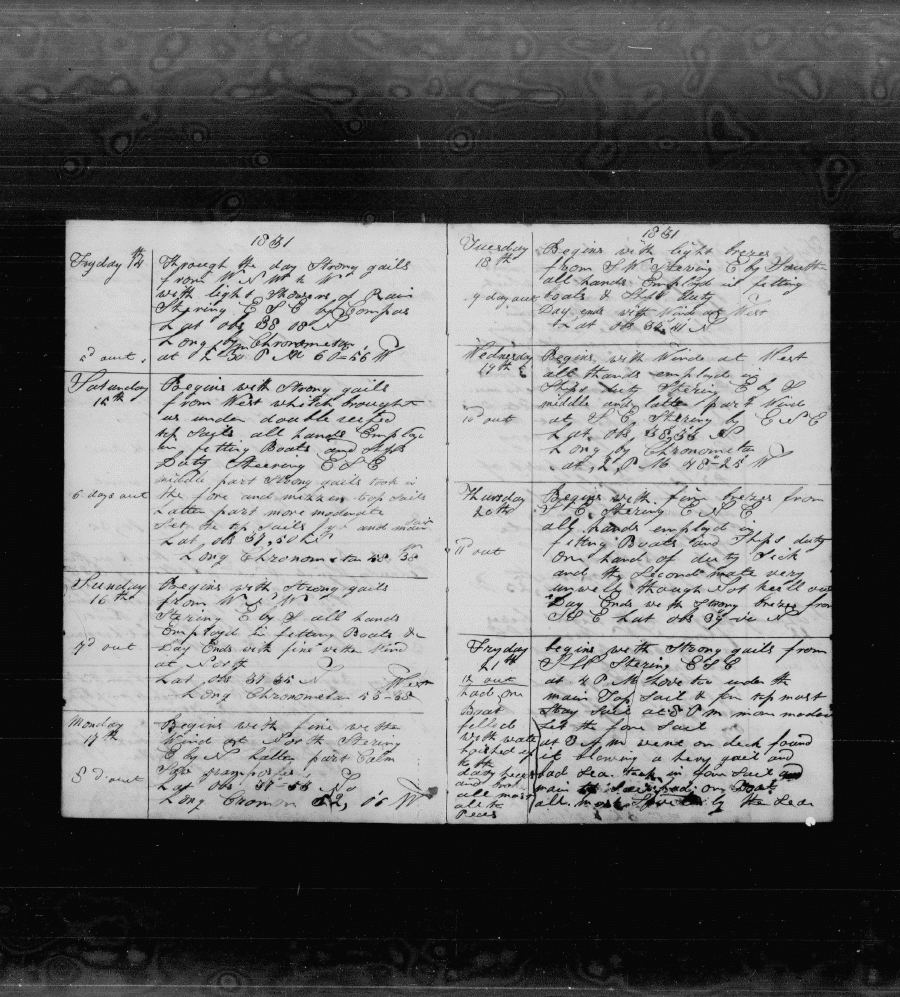 1831
Fryday 14th
5d out
Through the day Strong gails
from W N W & W
with light Showers of Rain
Stering E S E by Compas
Lat obs 38 08 N
Long by Chronometer
at 2-30 P M 60=56 W
Saturday
15th
6 days out
Begins with Strong gails
from West which brought
us under double reefed
top Sails all hands Employ
in fitting Boats and Ships
Duty Steering E S E
middle part Strong gails took in
the fore and mizzen top Sails
Latter part more moderate
Set the top Sails and main Sail
Lat obs 37,50 N
Long Chronometer 58 38
Sunday
16th
7d out
Begins with Strong gails
from W
Stering E by S all hands
Employd in fitting Boats &
Day Ends with fine wethe Wind
at North
Lat obs 37 35 N
Long Chronometer 55-38 West
Monday
17th
8d out
Begins with fine wethe
Wind at North Stering
E by N Latter part Calm
Saw
Lat obs 37-53 No
Long Cronom 52, 06 W
1831
Tuesday
18th
9 day out
Begins with light brezes
from S W Stering E by South
all hands Employd in fitting
boats & Ships duty
Day ends with Wind at West
Lat obs 38,41 N
Wednesday
19th
10d out
Begins with Winds at West
all hands employd in
Ships duty Sterin E by S
middle and latter part Wind
at S E, Stering by E N E
Lat obs, 38,53 N
Long by Chronometer
at, 2, P M 48-25 W
Thursday
20th
11d out
Begins with fine brezes from
S E Stering E N E
all hands employd in
fitting Boats and Ships duty
One hand of duty Sick
and the Second mate very
unwell though Not hall out
Day Ends with Strong brezes from
S S E Lat obs 39 N
Fryday
21th
12 out
had on
Boat
filled
with water
hoisted up
to the
davy
and
all most
all to
Peces
begins with Strong gails from
Stering E S E
at 4 P M hove too under the
main Top Sail & fore top most
Stay Sail at 8 P m more moder
Set the fore Sail
at 3 A m went on deck found
it blowing a hevy gail and
bad Sea took in fore Sail and
main top Sail had on Boat
all most by the Sea